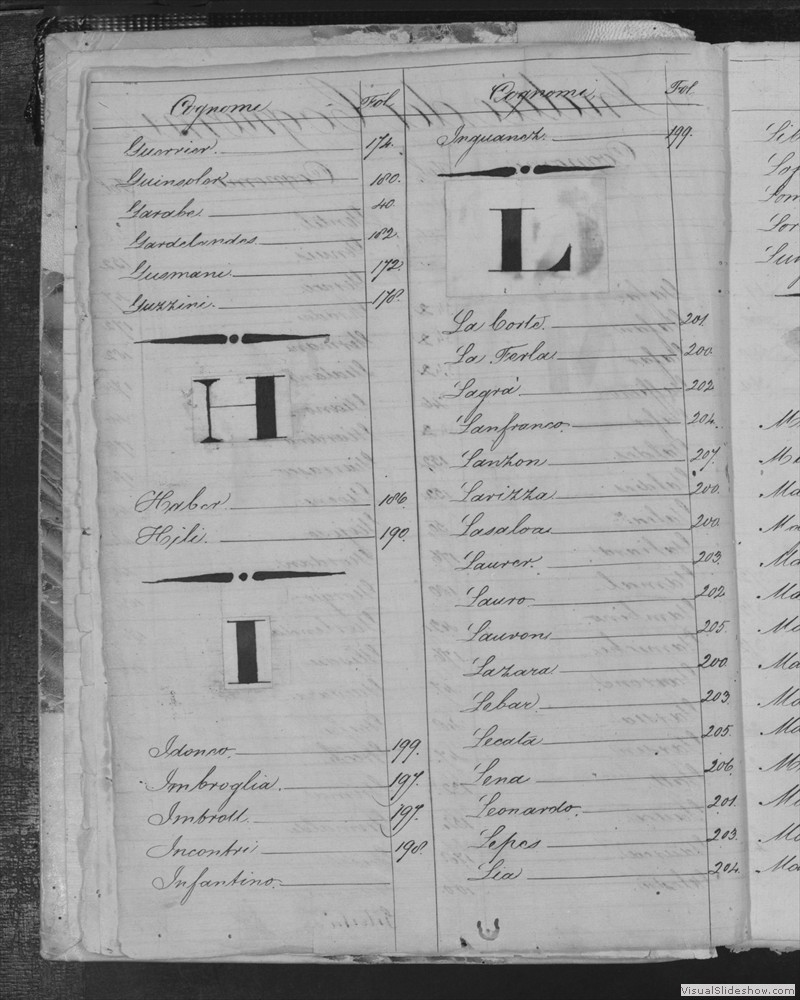 Cognomi Fol
Guerrier. 174.
Guinsolar 180.
Garabe 40
Gardelandes 182.
Gusmani 172.
Guzzini. 178.
H
Haber 186.
Hili. 190.
I
Idonco. 199.
Imbroglia. 197.
Imbroll. 197.
Incontri 198.
Infantino.
Cognomi Fol
Inguanez 199.
L
La Corte. 201.
La Ferla 200.
Lagrà 202.
Lanfranco. 204.
Lanzon 207.
Larizza 200.
Lasaloa 200.
Laurer. 203.
Lauro 202.
Lauron 205.
Lazara 200.
Lebar 203.
Lecata 205.
Lena 206.
Leonardo. 201.
Lepes 203.
Lia 204.
VisualSlideshow.com